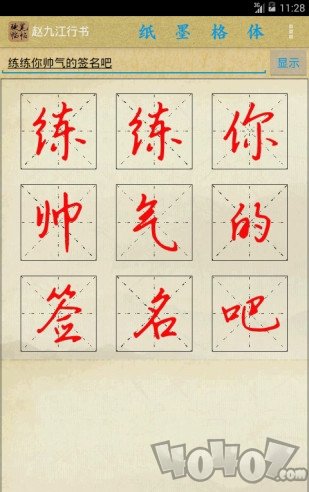 3G 11:28
赵九江行书 纸 墨 格 体
练练你帅气的签名吧 显示
练 练 你
帅 气 的
签 名 吧
40407